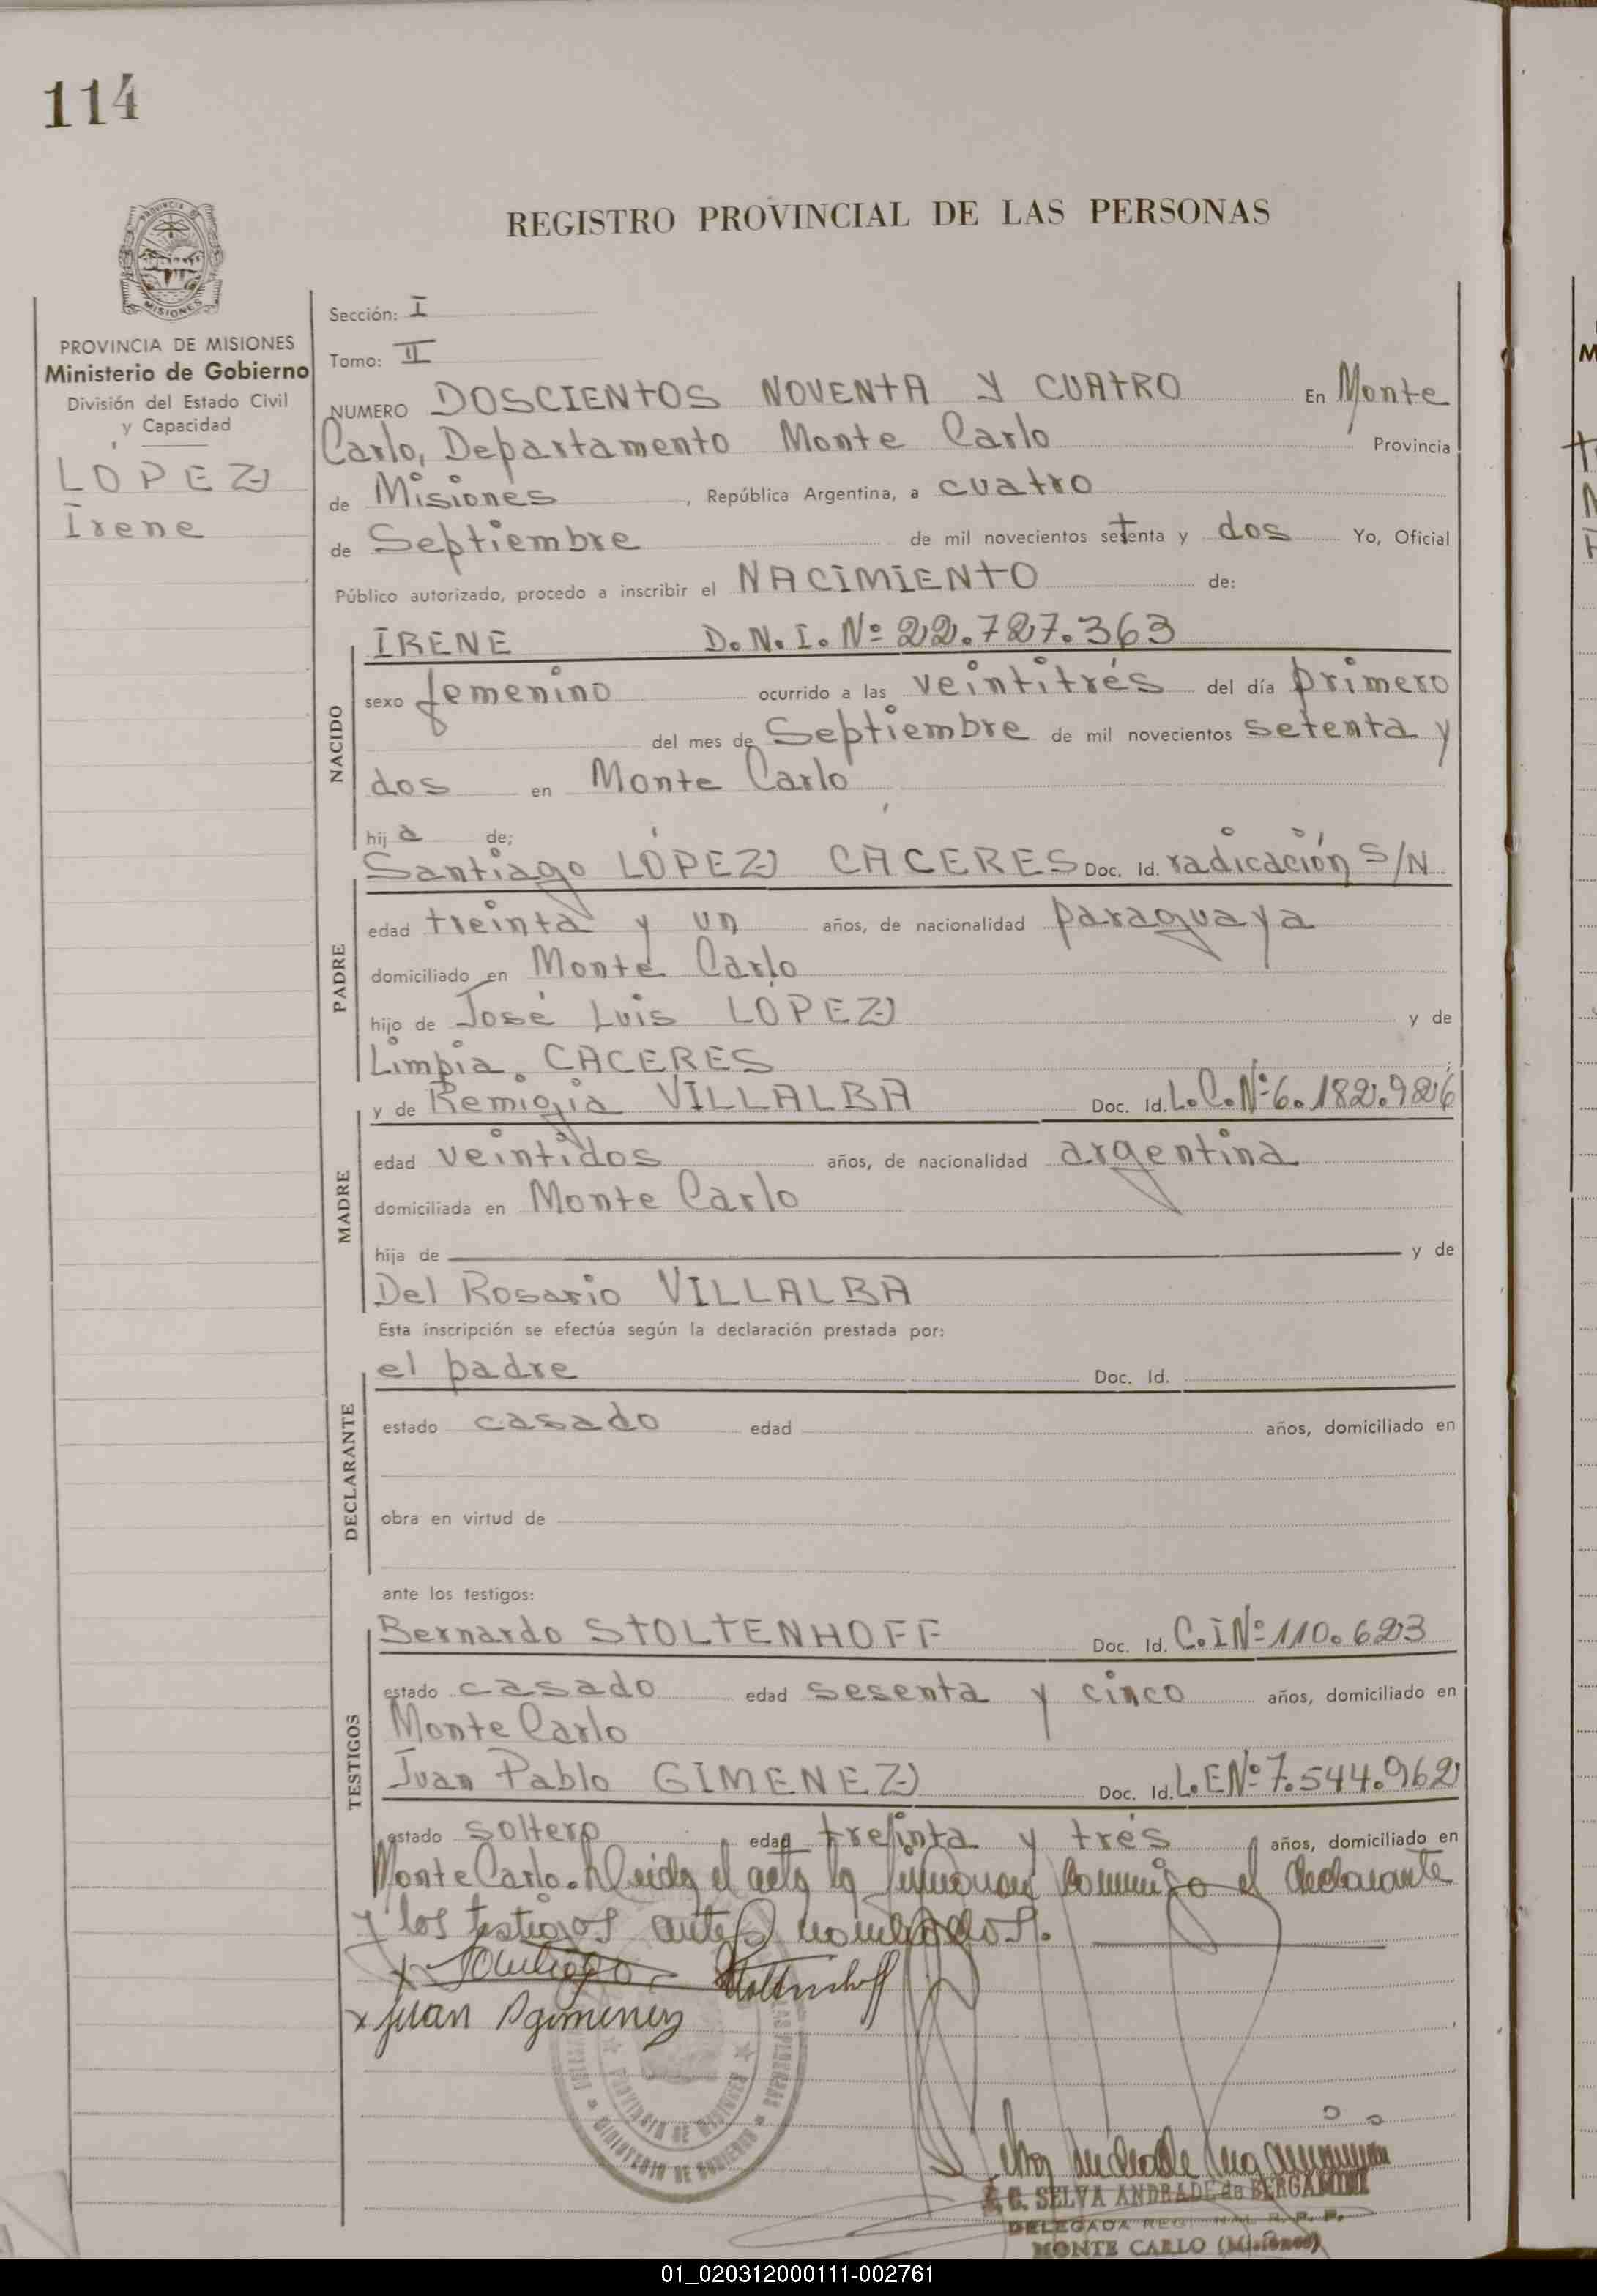 114
REGISTRO PROVINCIAL DE LAS PERSONAS
PROVINCIA DE MISIONES
Ministerio de Gobierno
División del Estado Civil
y Capacidad
LOPEZ
Irene
Sección: I
Tomo: II
NUMERO DOSCIENTOS NOVENTA Y CUATRO En Monte
Carlo, Departamento Monte Carlo Provincia
de Misiones, República Argentina, a cuatro
de Septiembre de mil novecientos setenta y dos Yo, Oficial
Público autorizado, procedo a inscribir el NACIMIENTO de:
NACIDO
IRENE D.N.I. Nº 22.727.363
sexo femenino ocurrido a las veintitrés del día primero
del mes de Septiembre de mil novecientos setenta y
dos en Monte Carlo
hija de;
PADRE
Santiago LÓPEZ CACERES Doc. Id. radicación S/N
edad treinta y un años, de nacionalidad paraguaya
domiciliado en Monte Carlo
hijo de José Luis LOPEZ y de
Limpia CACERES
MADRE
y de Remigia VILLALBA Doc. Id. L.C.Nº 6.182.926
edad veintidos años, de nacionalidad argentina
domiciliada en Monte Carlo
hija de y de
Del Rosario VILLALBA
Esta inscripción se efectúa según la declaración prestada por:
DECLARANTE
el padre Doc. Id.
estado casado edad años, domiciliado en
obra en virtud de
ante los testigos:
TESTIGOS
Bernardo STOLTENHOFF Doc. Id. C.I Nº 110.623
estado casado edad sesenta y cinco años, domiciliado en
Monte Carlo
Juan Pablo GIMENEZ Doc. Id. L.E Nº 7.544.962
estado soltero edad treinta y tres años, domiciliado en
Monte Carlo. Leida el acta la firmaron conmigo el declarante
y los testigos antes nombrados.
x Santiago Stoltenhoff
x Juan P gimenez
PROVINCIA DE MISIONES
MINISTERIO DE GOBIERNO
C. SELVA ANDRADE de BERGAMINI
DELEGADA R. P. P.
MONTE CARLO (Misiones)
01_020312000111-002761